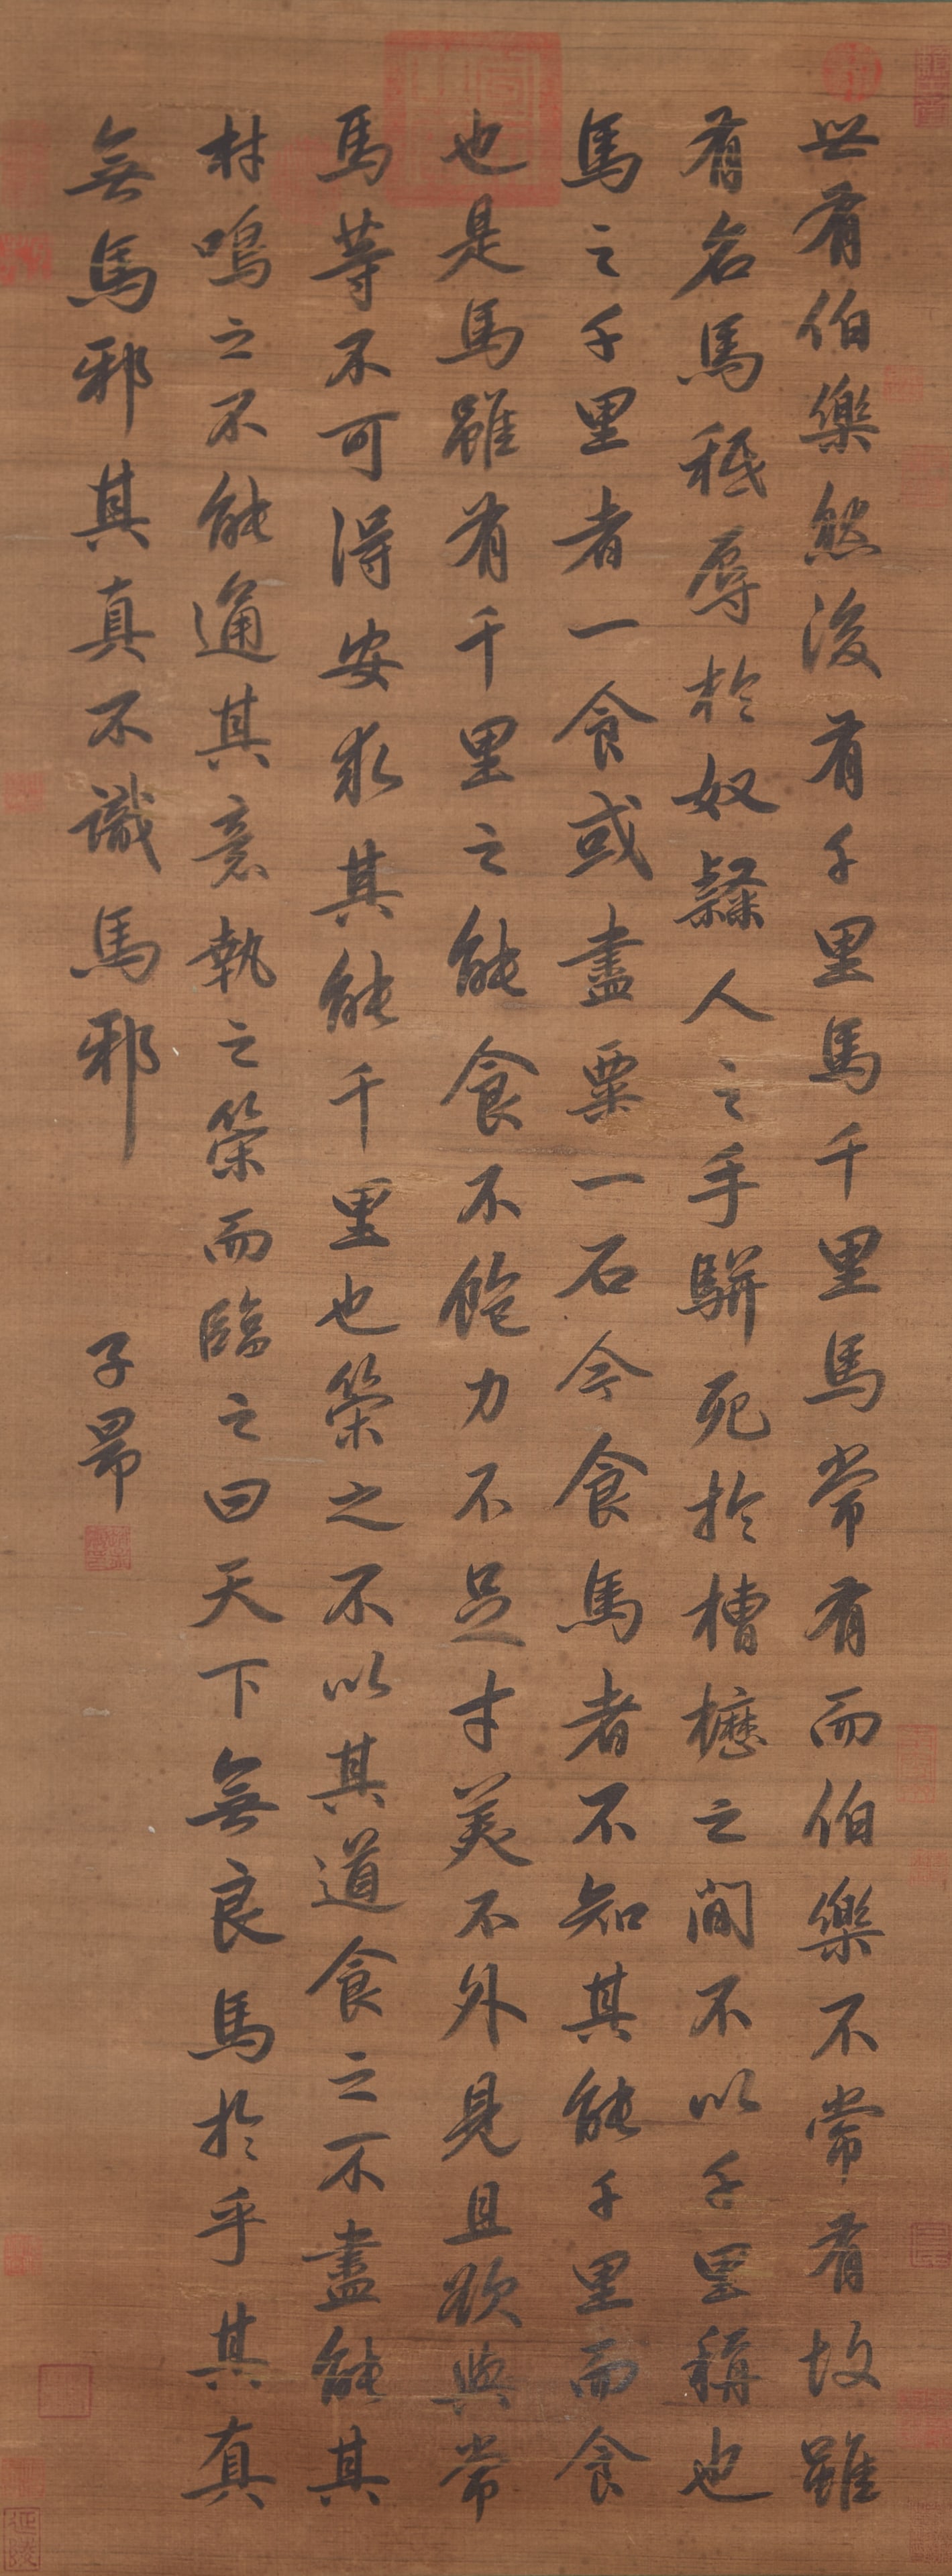 世有伯樂然後有千里馬千里馬常有而伯樂不常有故雖
有名馬秖辱於奴隸人之手駢死於槽櫪之間不以千里稱也
馬之千里者一食或盡粟一石今食馬者不知其能千里而食
也是馬雖有千里之能食不飽力不足才美不外見且欲與常
馬等不可得安求其能千里也策之不以其道食之不盡能其
材鳴之不能通其意執之策而臨之曰天下無良馬於乎其真
無馬邪其真不識馬邪
子昂